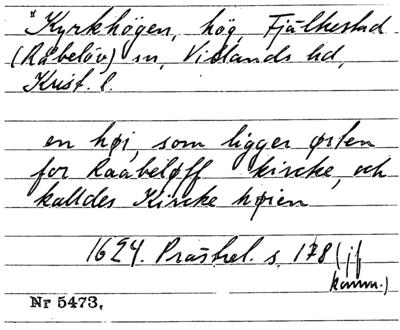 *Kyrkhögen, hög, Fjälkestad
(Råbelöv) sn, Villands hd,
Krist. l.
en høi, som ligger østen
for Raabeløff kircke, och
kalldes Kircke høien
1624. Prästrel. s. 178 (jf
komm.)
Nr 5473.